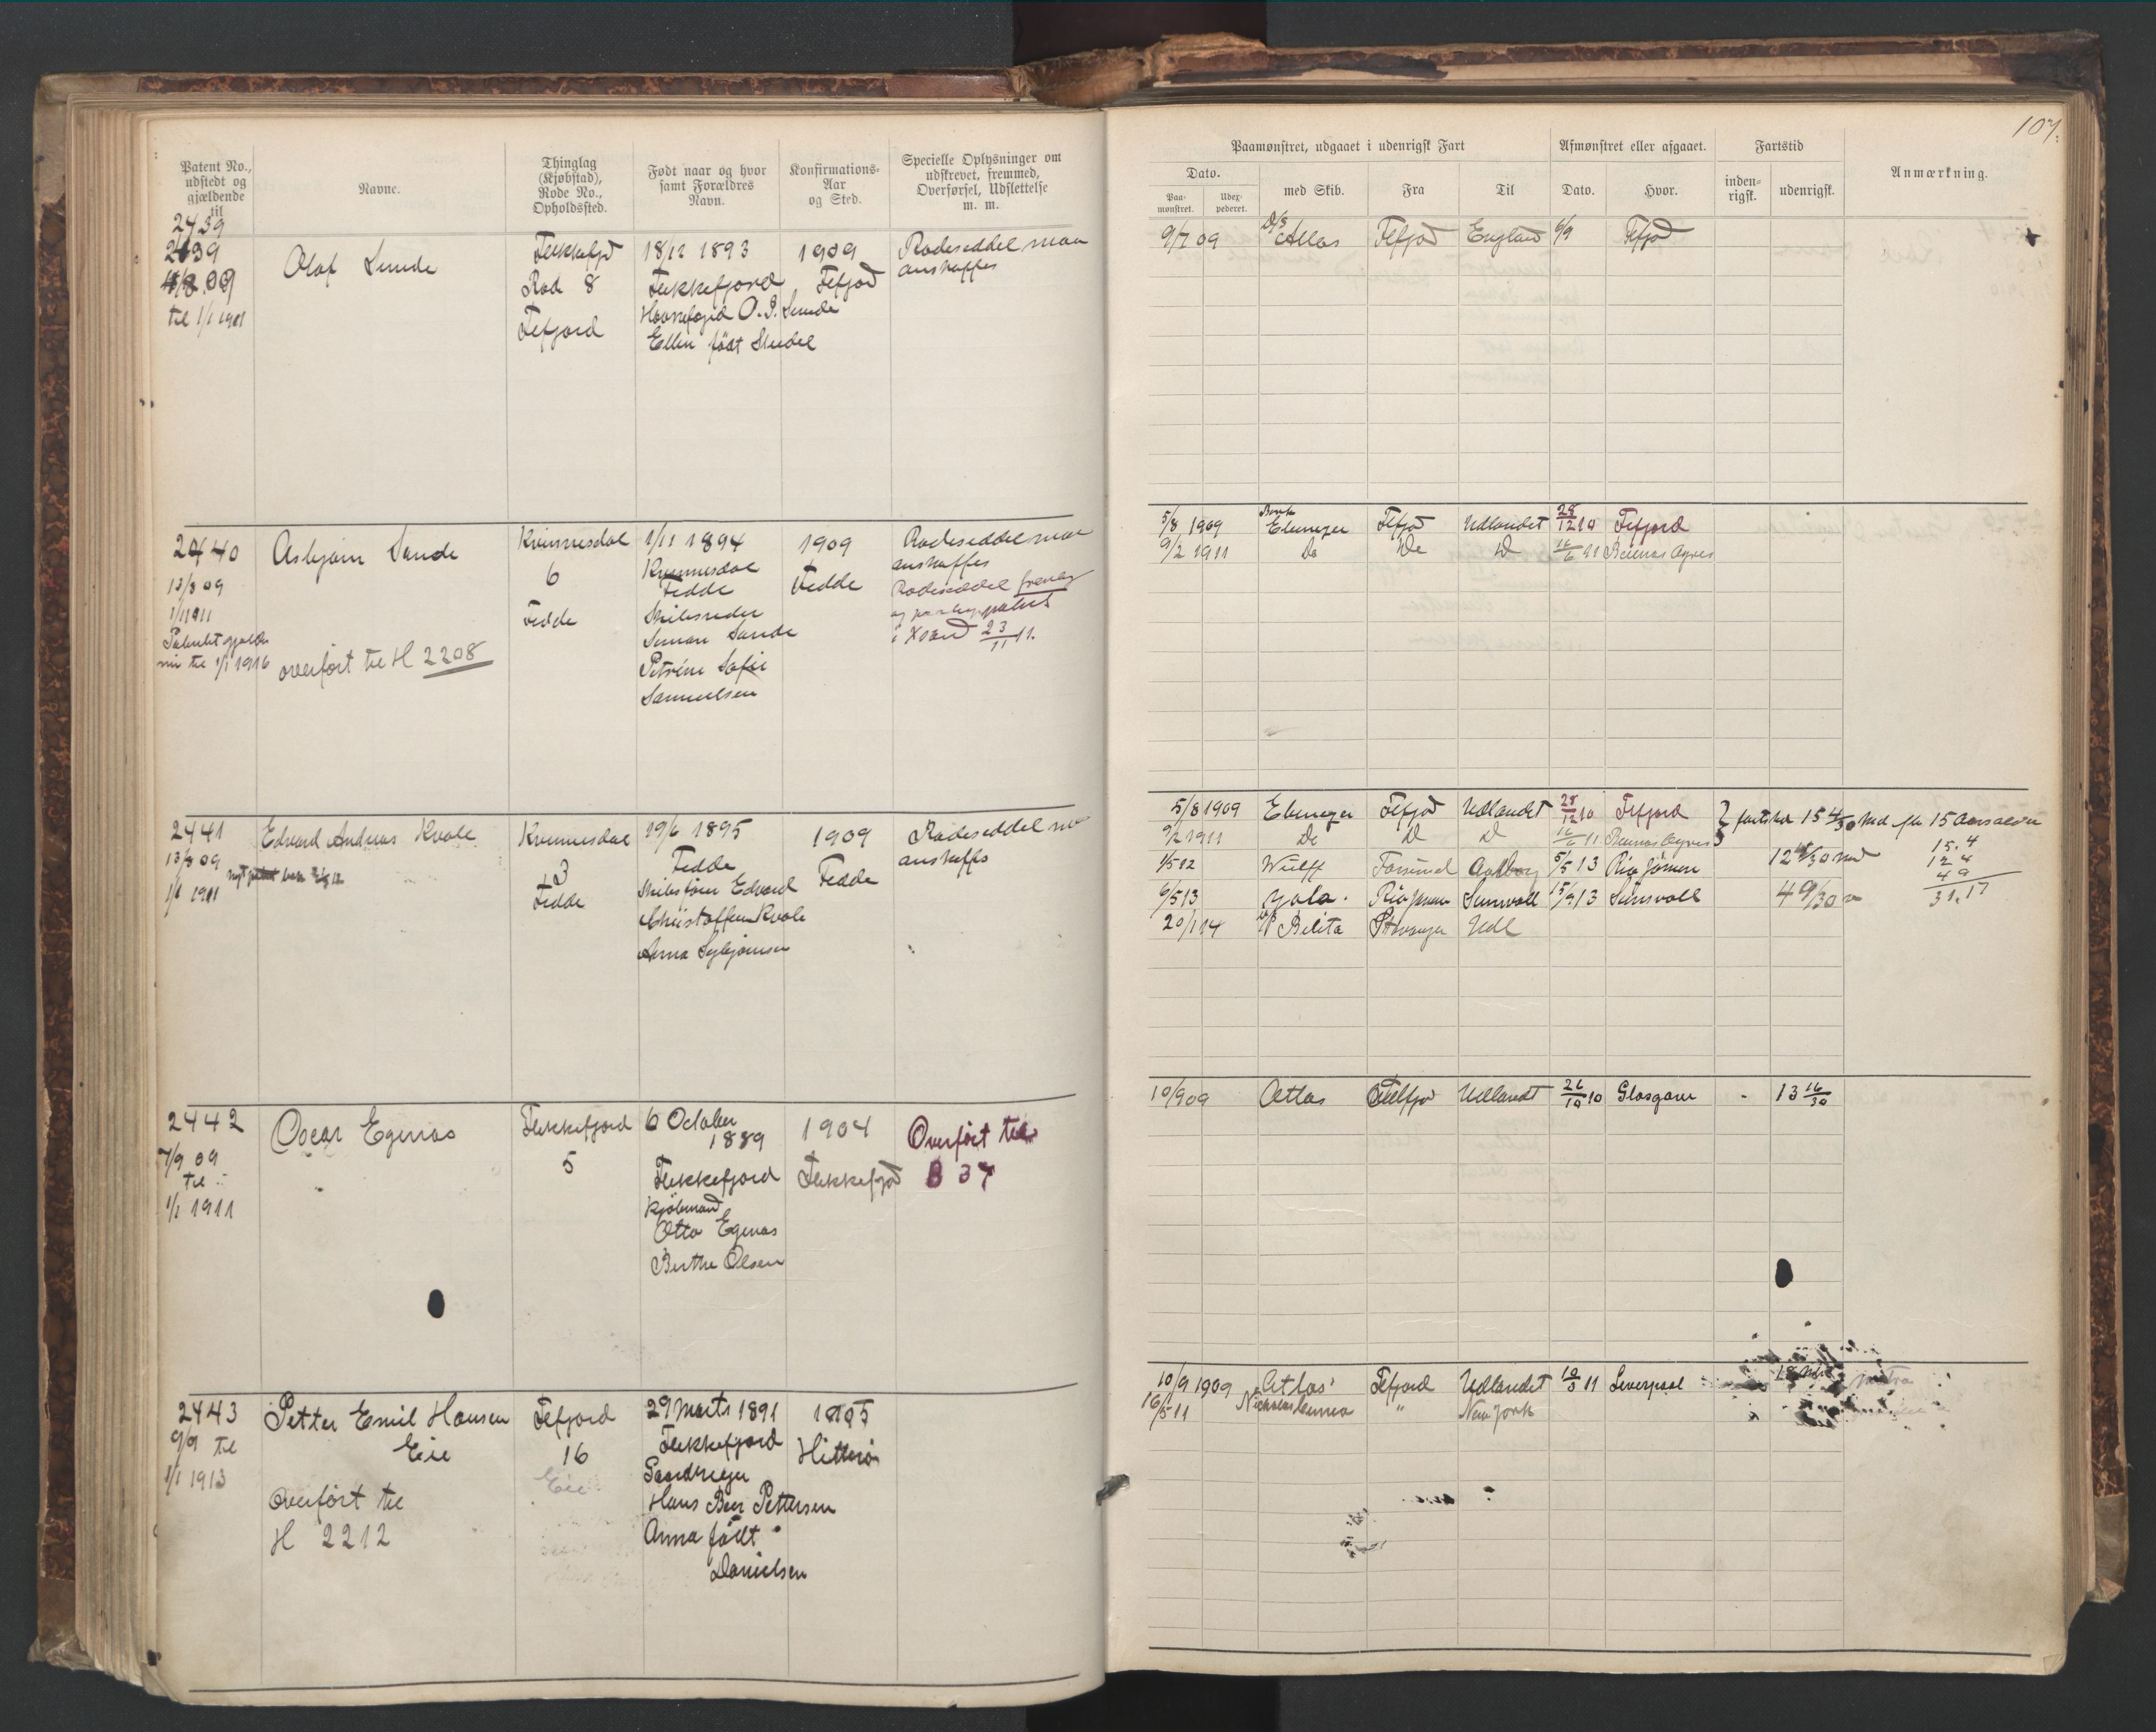 Patent No.,
udstedt og
gjældende
til
Navne.
Thinglag
(Kjøbstad),
Rode No.,
Opholdssted.
Født naar og hvor
samt Forældres
Navn.
Konfirmations-
Aar
og Sted.
Specielle Oplysninger om
udskrevet, fremmed,
Overførsel, Udslettelse
m. m.
2439
2439
til 1/1 1911
Olaf Sunde
Flekkefjd
Rod 8
Fefjord
18/12 1893
Flekkefjord
O. P. Sunde
Ellen født
1909
Fefjod
Rodeseddel maa
anskaffes
2440
13/8 09
1/1 1911
Patentet gjælder
nu til 1/1 1916
Asbjørn Sande
overført til H 2208
Kvinnesdal
6
Fedde
1/11 1894
Kvinnesdal
Fedde
Skibsreder
Simon Sande
Petrine Sofie
Samuelsen
1909
Fedde
Rodeseddel maa
anskaffes
Rodeseddel
i Xsand 23/11 11.
2441
13/8 09
1/1 1911
Edvard Andreas Kvale
Kvinnesdal
3
Fedde
19/6 1895
Fedde
Skibsfører Edvard
Christoffersen Kvale
Anna
1909
Fedde
Rodeseddel m
anskaffes
2442
7/9 09
til
1/1 1911
Oscar Egenas
Flekkefjord
5
6 October
1889
Flekkefjord
Kjøbmand
Otto Egenas
Berthe Olsen
1904
Flekkefjod
Overført til
B 37
2443
9/9 til
1/1 1913
Petter Emil Hansen
Eie
Overført til
H 2212
Fefjord
16
Eie
29 Marts 1891
Flekkefjord
Gaardbruger
Hans Ber Pettersen
Anna født
Danielsen
1905
Hitterø
107.
Paamønstret, udgaaet i udenrigsk Fart
Afmønstret eller afgaaet.
Fartstid
Anmærkning.
Dato.
Paa-
mønstret.
Udex-
pederet.
med Skib.
Fra
Til
Dato.
Hvor.
inden-
rigsk.
udenrigsk.
9/7 09 D/S Atlas Flfjod England 6/9 Fefjod
5/8 1909 Bark Ebenezer Flfjod Udlandet 28/12 10 Fefjord
9/2 1911 Do Do D 16/6 11 Buenos Ayres
5/8 1909 Ebenezer Fefjod Udlandet 28/12 10 Fefjord fartstid 15 4/30 Md fu 15 Aarsalder
9/2 1911 Do D D 16/6 11 Buenos Ayres
1/5 12 Wulff Aalborg 5/5 13 Rio
6/5 13 Yola. Rio Sunsvall 15/9 13 Sunsvall 4 9/30
20/1 14 Belita Stavanger Udl
15.4
12 4
4 9
31.17
10/9 09 Atlas Udlandt 26/10 10 Glasgow - 13 16/30
10/9 1909 Atlas Fefjord Udlandet 10/3 11 Liverpool
16/5 11 " New York